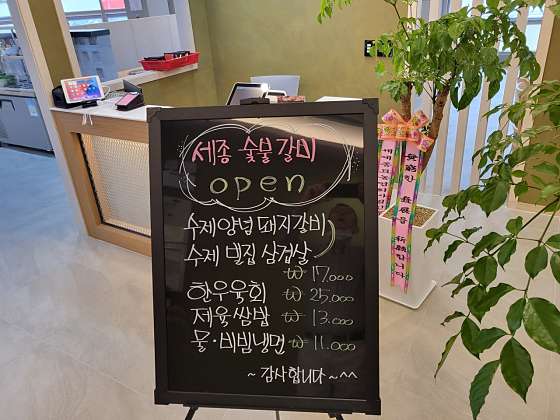 세종 숯불갈비
open
수제양념 돼지갈비
수제 벌집 삼겹살
₩ 17.000
한우육회 ₩ 25.000
제육쌈밥 ₩ 13.000
물·비빔냉면 ₩ 11.000
~ 감사합니다 ~^^